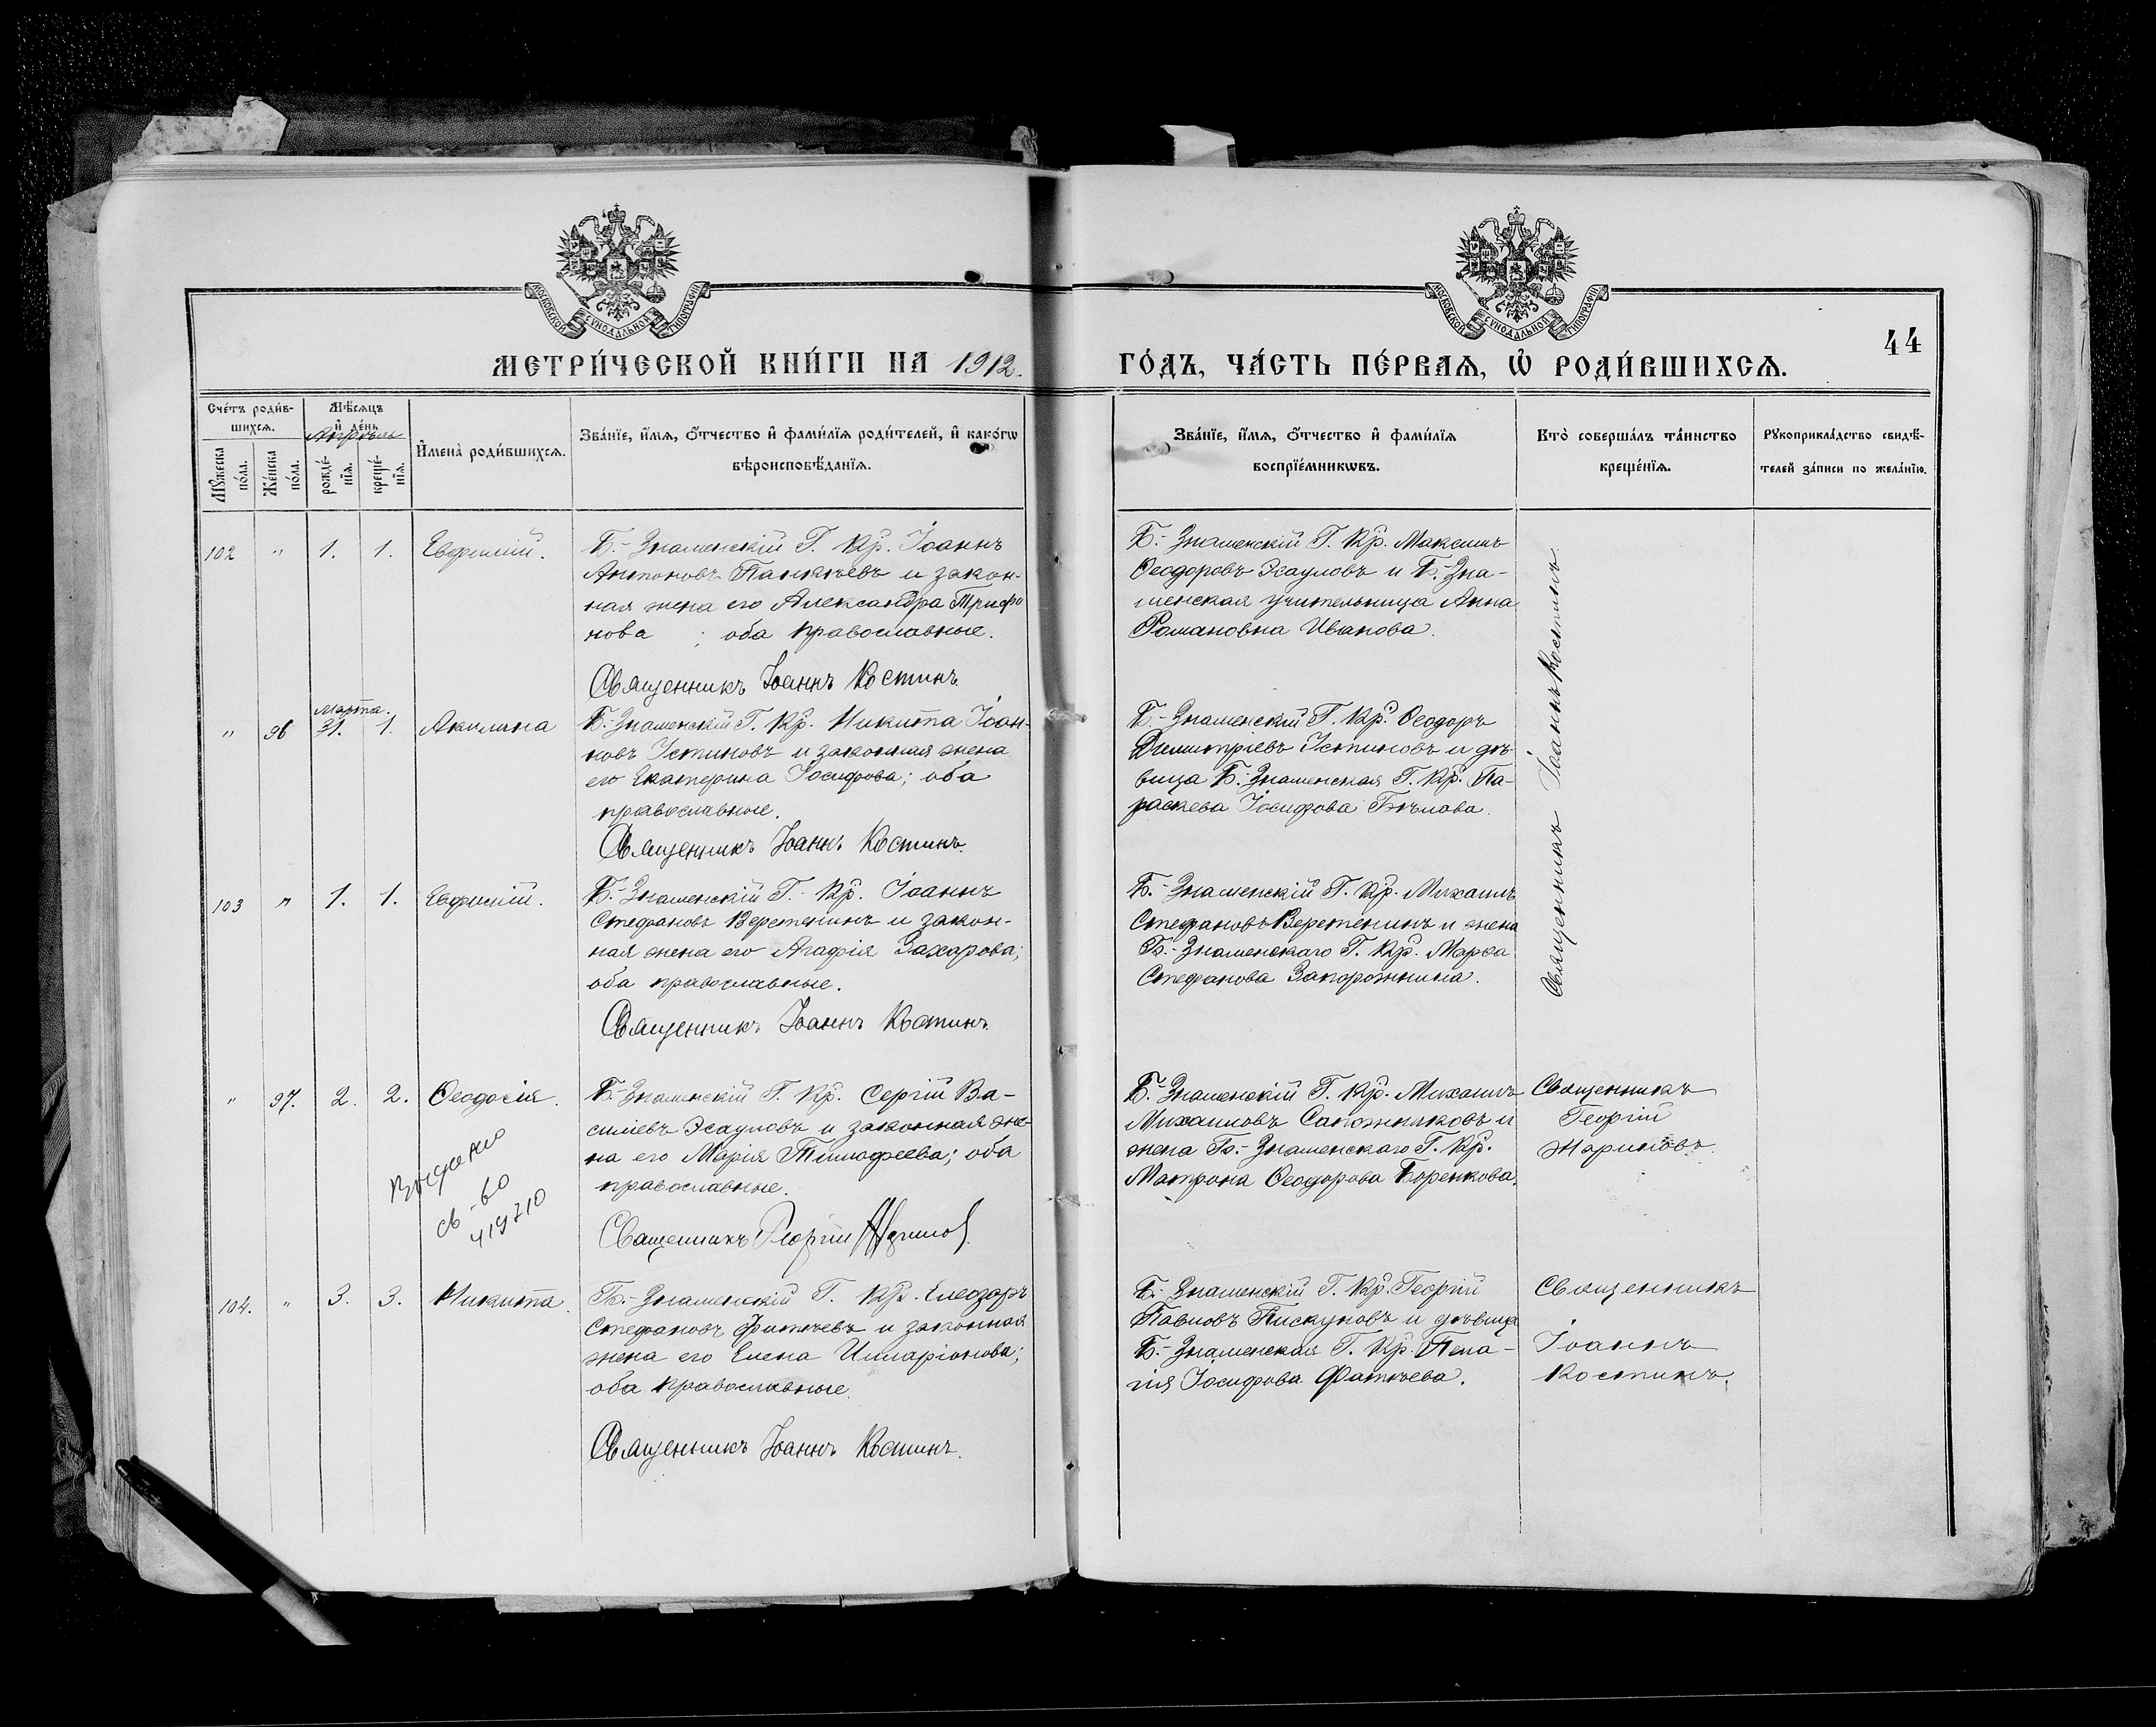 МОСКОВСКОЙ СУНОДАЛЬНОЙ ТИПОГРАФІИ
МОСКОВСКОЙ СУНОДАЛЬНОЙ ТИПОГРАФІИ
МЕТРИ́ЧЕСКОЙ КНИ́ГИ НА 1912.
ГО́ДЪ, ЧА́СТЬ ПЕ́РВАѦ, Ѽ РОДИ́ВШИХСѦ.
44
Сче́тъ роди́в-
шихсѧ.
Мѣ́сѧцъ
и҆ де́нь
Апрѣль
Мꙋ́жеска
по́ла.
Же́нска
по́ла.
рожде́-
нїѧ.
креще́-
нїѧ.
И҆мена̀ роди́вшихсѧ.
Зва́нїе, и҆́мѧ, ѻ҆́тчество и҆ фами́лїѧ роди́телей, и҆ како́гѡ
вѣроисповѣ́данїѧ.
Зва́нїе, и҆́мѧ, ѻ҆́тчество и҆ фами́лїѧ
воспрїе́мникѡвъ.
Кто̀ соверша́лъ та́инство
креще́нїѧ.
Рꙋкоприкла́дство свидѣ́-
телей за́писи по жела́нїю.
102 " 1. 1. Евфимій.
Б.-Знаменскій Г. Кр. Іоаннъ
Антоновъ Панкѣевъ и закон-
ная жена его Александра Трифо
нова ; оба православные.
Священникъ Іоаннъ Костинъ.
Б.-Знаменскій Г. Кр. Максимъ
Ѳеодоровъ Эсауловъ и Б.-Зна-
менская учительница Анна
Романовна Иванова.
Священникъ Іоаннъ Костинъ
марта.
" 96 31. 1. Акилина
Б.-Знаменскій Г. Кр. Никита Іоан-
новъ Устиновъ и законная жена
его Екатерина Іосифова; оба
православные.
Священникъ Іоаннъ Костинъ.
Б.-Знаменскій Г. Кр. Ѳеодоръ
Димитріевъ Устиновъ и дѣ-
вица Б.-Знаменская Г. Кр. Па-
раскева Іосифова Бѣлова.
103 " 1. 1. Евфимій.
Б.-Знаменскій Г. Кр. Іоаннъ
Стефановъ Веретенинъ и закон-
ная жена его Агафія Захарова;
оба православные.
Священникъ Іоаннъ Костинъ.
Б.-Знаменскій Г. Кр. Михаилъ
Стефановъ Веретенинъ и жена
Б.-Знаменскаго Г. Кр. Марѳа
Стефанова Запорожнина.
" 97. 2. 2. Ѳеодосія.
Выдано
св-во
419710
Б.-Знаменскій Г. Кр. Сергій Ва-
силіевъ Эсауловъ и законная же-
на его Марія Тимофеева; оба
православные.
Священникъ Георгій Жариновъ
Б.-Знаменскій Г. Кр. Михаилъ
Михаиловъ Сапожниковъ и
жена Б.-Знаменскаго Г. Кр.
Матрона Ѳеодорова Боренкова.
Священникъ
Георгій
Жариновъ.
104. " 3. 3. Никита.
Б.-Знаменскій Г. Кр. Елеазаръ
Стефановъ Фатѣевъ и законная
жена его Елена Илларіонова;
оба православные.
Священникъ Іоаннъ Костинъ.
Б.-Знаменскій Г. Кр. Георгій
Павловъ Пискуновъ и дѣвица
Б.-Знаменская Г. Кр. Пела-
гія Іосифова Фатѣева.
Священникъ
Іоаннъ
Костинъ.